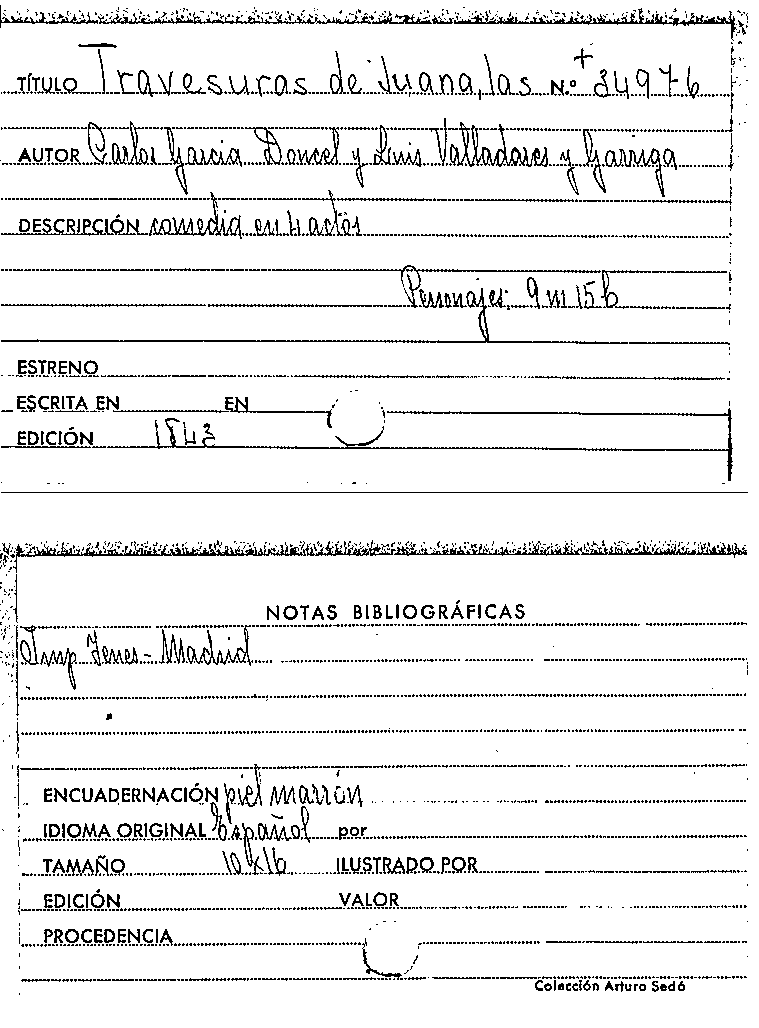 TÍTULO Travesuras de Juana, las N.º + 34976
AUTOR Carlos Garcia Doncel y Luis Valladares y Garriga
DESCRIPCIÓN comedia en 4 actos
Personajes: 9 m 15 h
ESTRENO
ESCRITA EN EN
EDICIÓN 1843
NOTAS BIBLIOGRÁFICAS
Imp Yenes - Madrid
ENCUADERNACIÓN piel marrón
IDIOMA ORIGINAL Español por
TAMAÑO 10x16 ILUSTRADO POR
EDICIÓN VALOR
PROCEDENCIA
Colección Arturo Sedó